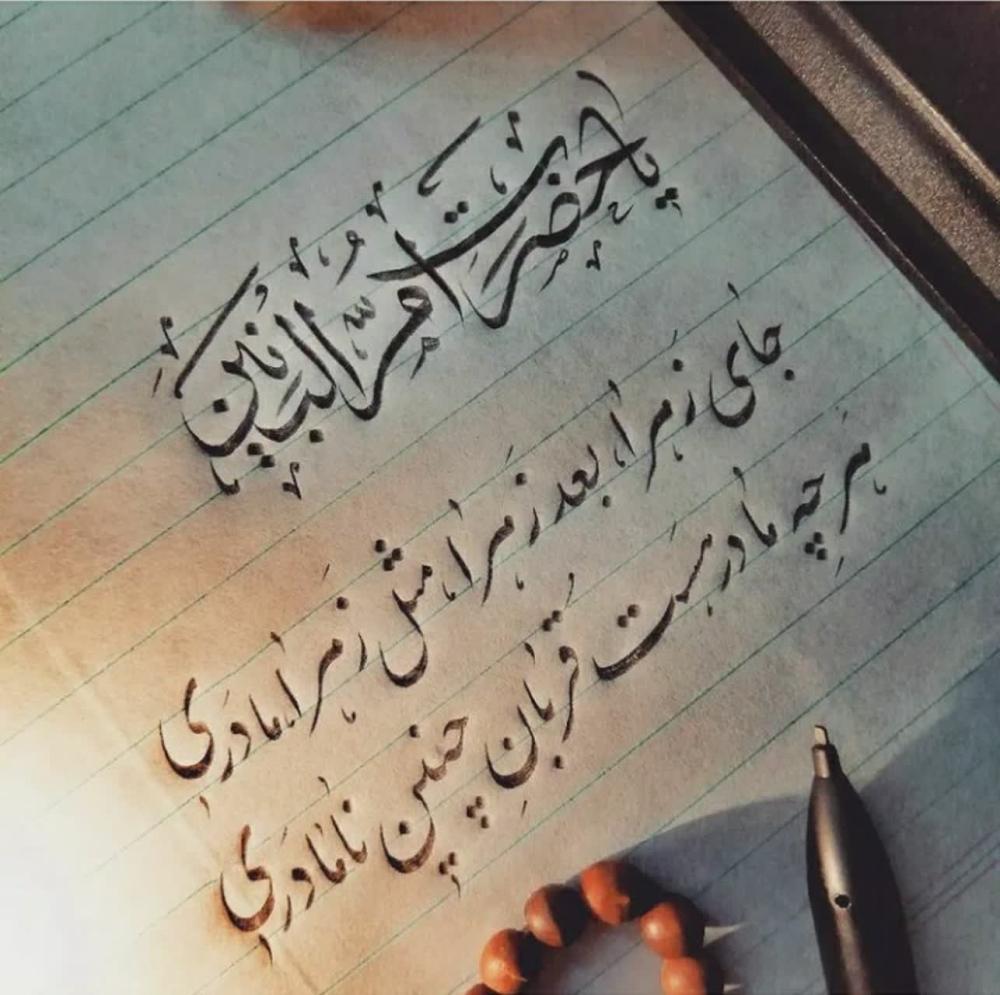 یا حضرت امّ البنین
جای زهرا بعد زهرا مثل زهرا مادری
هر چه مادر هست قربانِ چنین نامادری